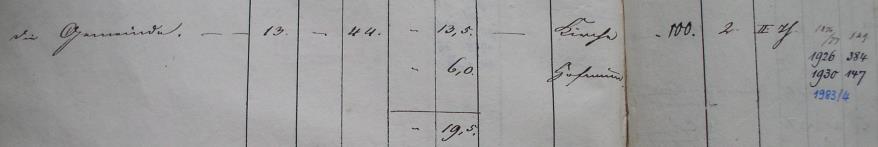 die Gemeinde. — — 13. — 44. - 13,5. — Kirche - 100. 2. II
1926 384
- 6,0. Hofraum. 1930 147
1983/4
- 19,5.